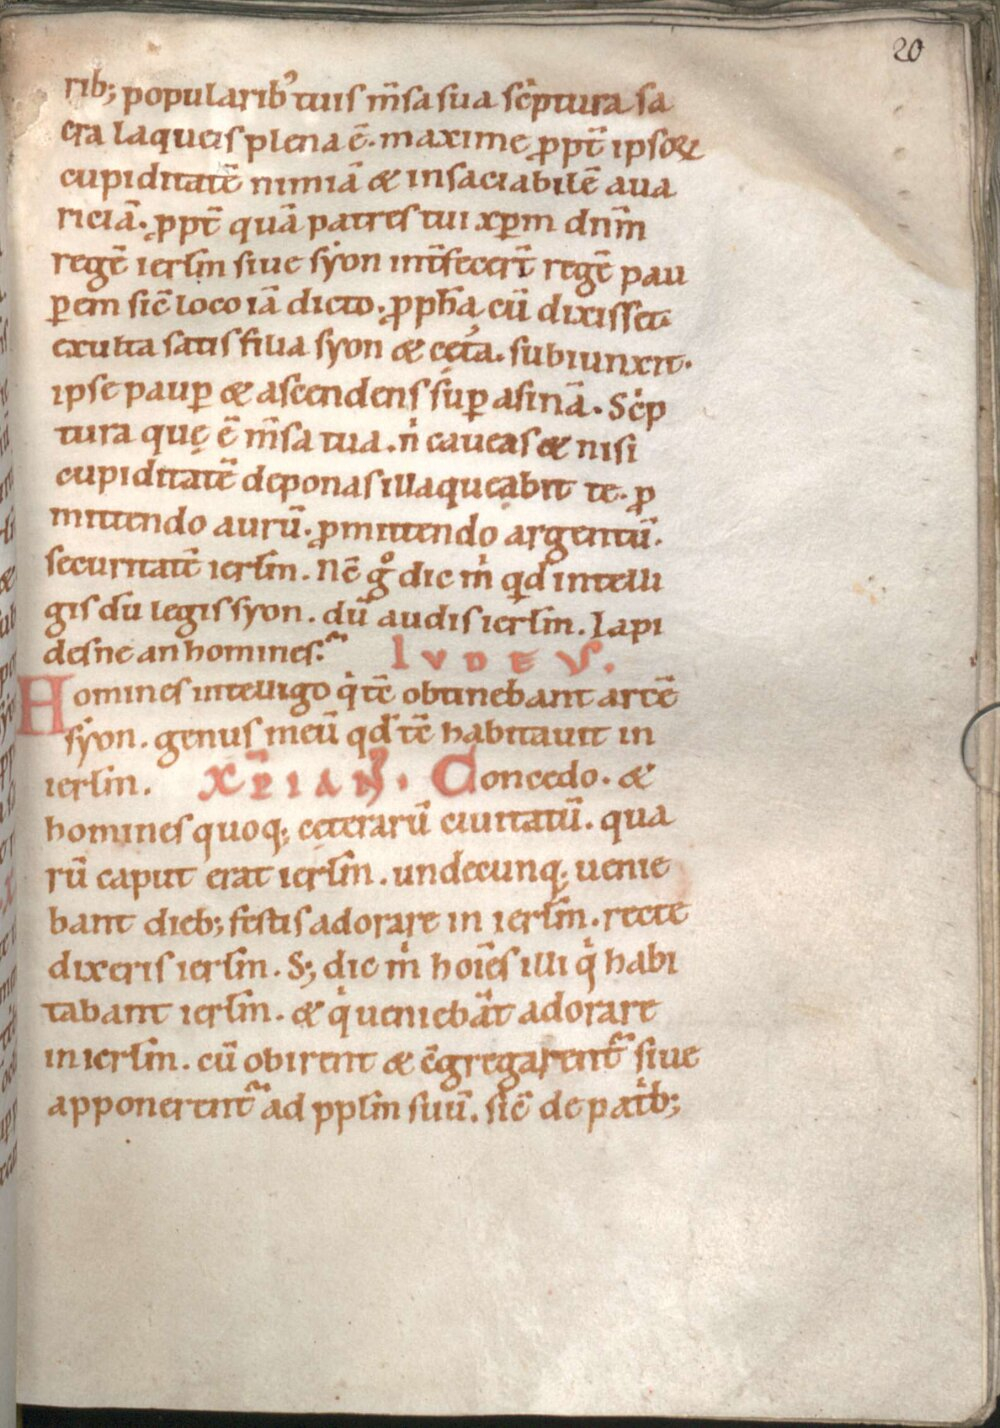 20
rib; popularib᷒ tuis m̄sa sua sc̓ptura sa
cra laqueis plena ē. maxime ꝓpt̄ ipsoꝝ
cupiditatē nimiā & insaciabilē aua
riciā. ꝓpt̄ quā patres tui xp̄m dn̄m
regē ierl̄m siue syon int̄fecer̄t regē pau
ꝑem sic̄ loco iā dicto. ꝓph̄a cū dixisset
exulta satis filia syon & cęt̓a. subiunxit.
ipse pauꝑ & ascendens suꝑ asinā. Sc̓p
tura quę ē m̄sa tua. nͥ caueas & nisi
cupiditatē deponas illaqueabit te. ꝓ
mittendo aurū. ꝓmittendo argentū.
securitatē ierl̄m. Nc̄ gͦ dic mͥ qd̓ intelli
gis dū legis syon. dū audis ierl̄m. Lapi
desne an homines? IVDEVS.
Homines intelligo qͥ tc̄ obtinebant artē
syon. genus meū qd̓ tc̄ habitauit in
ierl̄m. XP̄IAN᷒. Concedo. &
homines quoq; ceterarū ciuitatū. qua
rū caput erat ierl̄m. undecunq; uenie
bant dieb; festis adorare in ierl̄m. recte
dixeris ierl̄m. S; dic mͥ hoīes illi qͥ habi
tabant ierl̄m. & qͥ ueniebāt adorare
in ierl̄m. cū obirent & c̄gregarent᷑ siue
apponerent᷑ ad ppl̄m suū. sic̄ de patͥb;